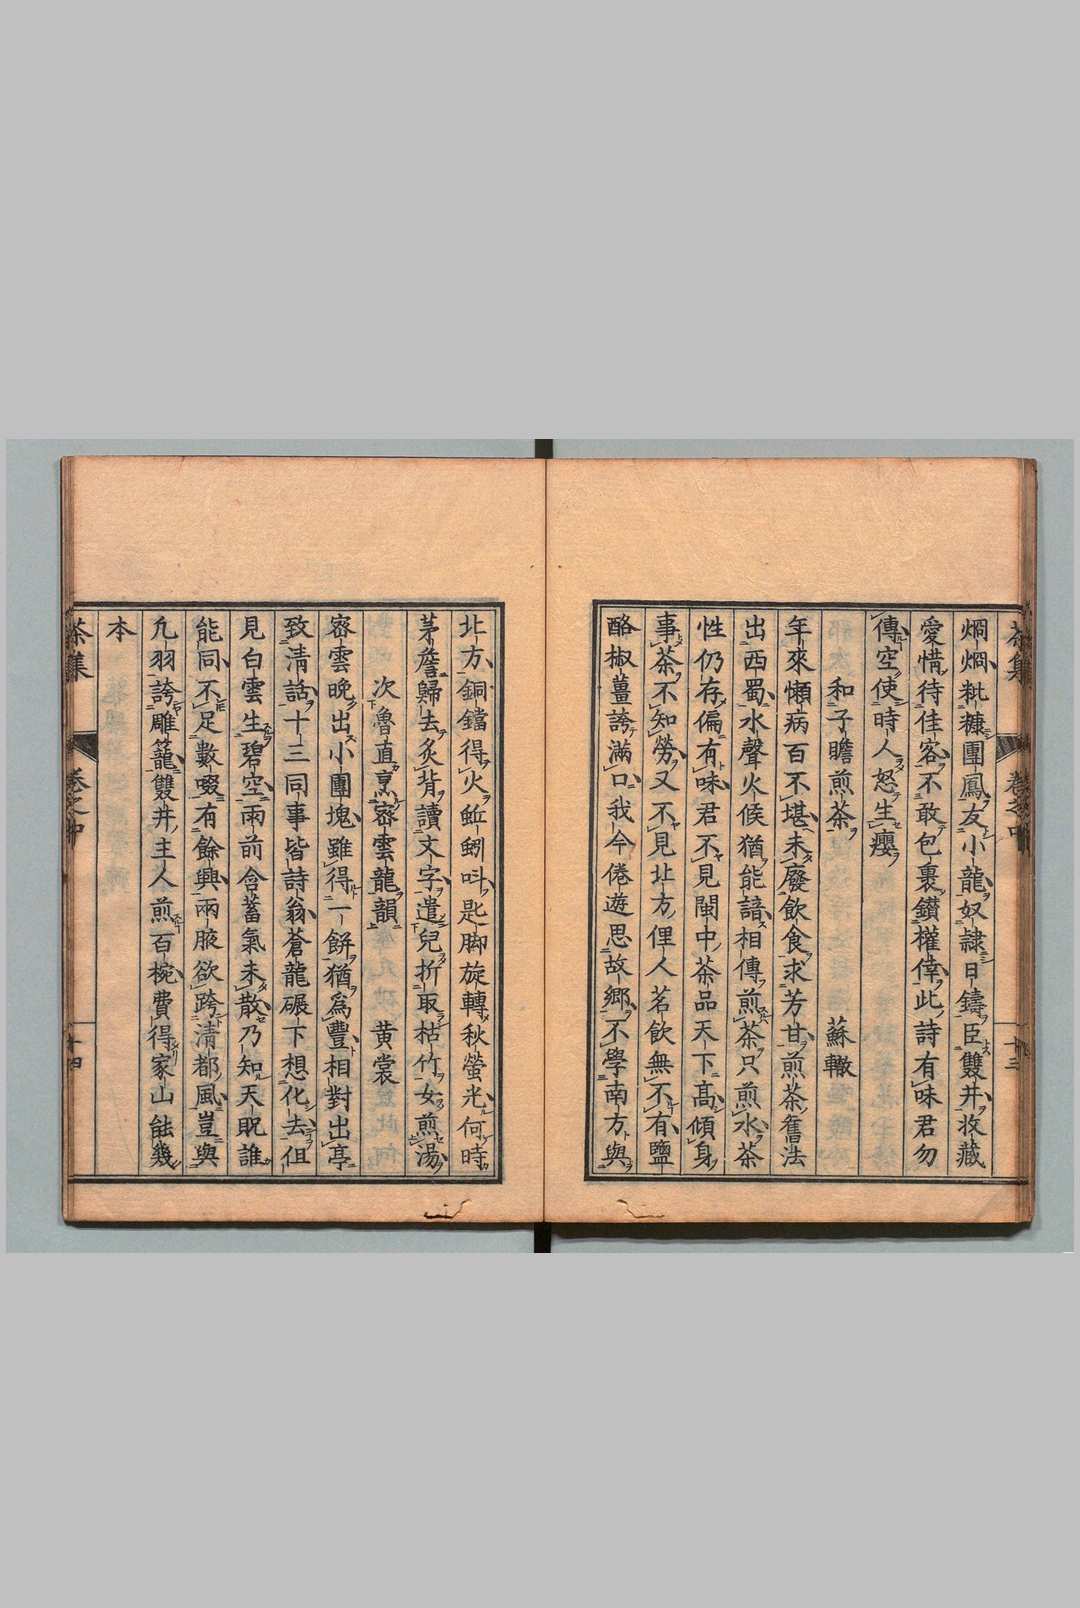 烱烱粃糠團鳳友小龍奴隷日鑄臣雙井收藏
愛惜待佳客不敢包裹鑚權倖此詩有味君勿
傳空使時人怒生癭
和子瞻煎茶　蘇轍
年來懶病百不堪未廢飲食求芳甘煎茶舊法
出西蜀水聲火候猶能諳相傳煎茶只煎水茶
性仍存偏有味君不見閩中茶品天下髙傾身
事茶不知勞又不見北方俚人茗飲無不有鹽
酪椒薑誇滿口我今倦遊思故鄉不學南方與
北方銅鐺得火蚯蚓叫匙脚旋轉秋螢光何時
茅簷歸去炙背讀文字遣兒折取枯竹女煎湯
次魯直烹宻雲龍韻　黄裳
宻雲晚出小團塊雖得一餅猶爲豐相對出亭
致淸話十三同事皆詩翁蒼龍碾下想化去但
見白雲生碧空雨前含蓄氣未散乃知天貺誰
能同不足數啜有餘興兩腋欲跨清都風豈與
凢羽誇雕籠雙井主人煎百椀費得家山能幾
本
茶集　卷之中　十三
茶集　卷之中　十四